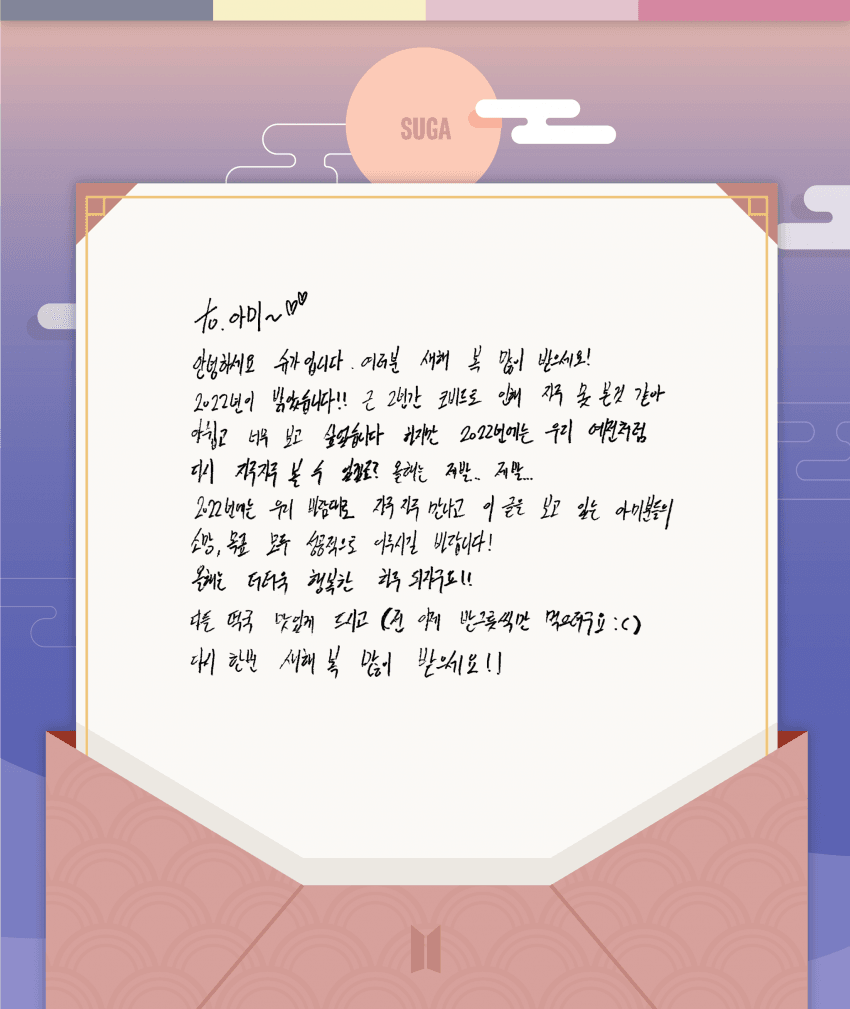 SUGA
to. 아미~♡♡
안녕하세요 슈가입니다. 여러분 새해 복 많이 받으세요!
2022년이 밝았습니다!! 근 2년간 코비드로 인해 자주 못 본것 같아
아쉽고 너무 보고 싶었습니다 하지만 2022년에는 우리 예전처럼
다시 자주자주 볼 수 있겠죠? 올해는 제발.. 제발...
2022년에는 우리 바람대로 자주 자주 만나고 이 글을 보고 있는 아미분들의
소망, 목표 모두 성공적으로 이루시길 바랍니다!
올해는 더더욱 행복한 하루 되자구요!!
다들 떡국 맛있게 드시고 (전 이제 반그릇씩만 먹으려구요 :<)
다시 한번 새해 복 많이 받으세요!!